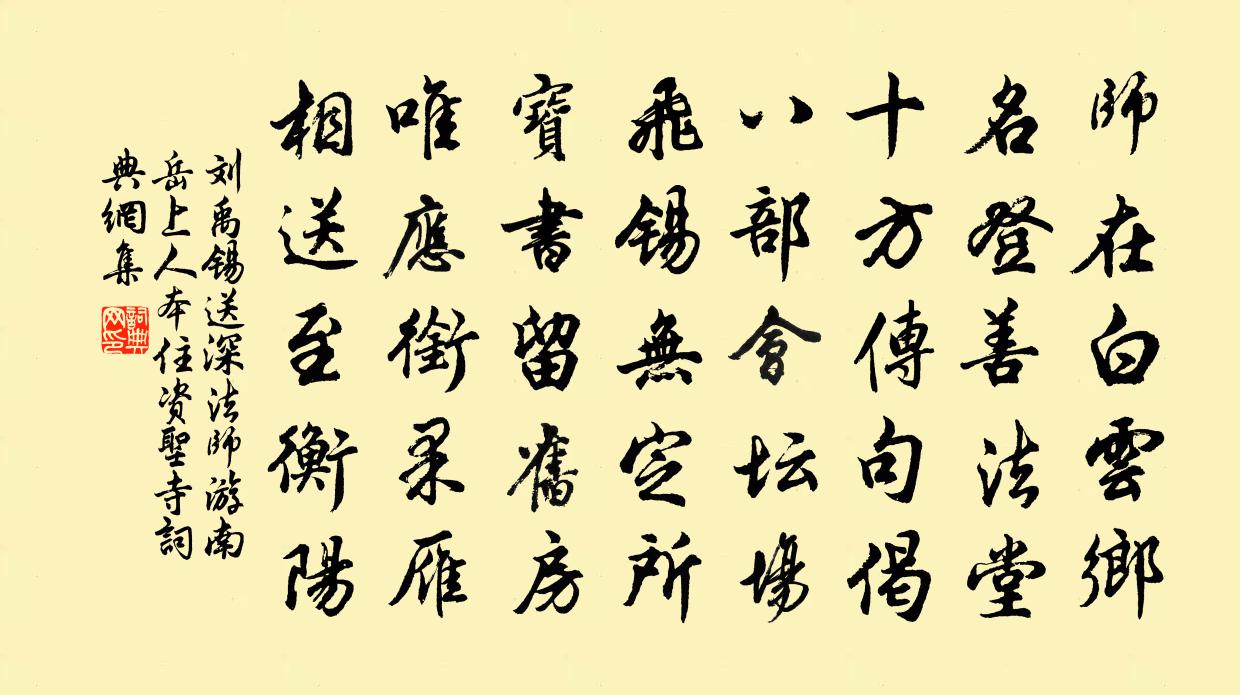 師在白雲鄉
名登善法堂
十方傳句偈
八部會坛場
飛錫無定所
寶書留舊房
唯應銜果雁
相送至衡陽
刘禹錫送深法師游南
岳上人本住资聖寺詞
典網集
詞典网印